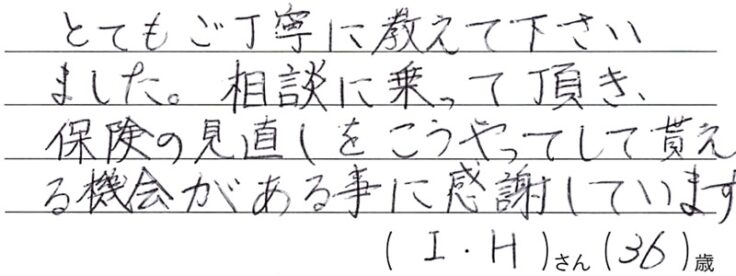 とてもご丁寧に教えて下さい
ました。相談に乗って頂き、
保険の見直しをこうやってして貰え
る機会がある事に感謝しています
(I・H)さん(36)歳